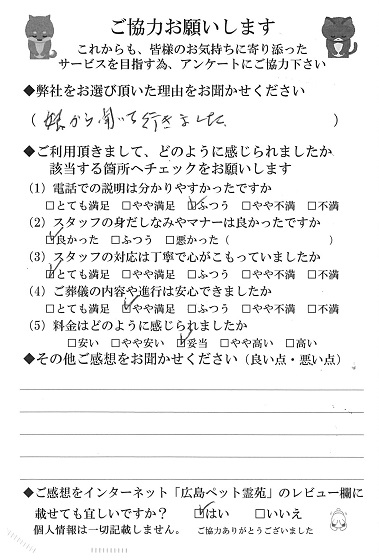 ご協力お願いします
これからも、皆様のお気持ちに寄り添った
サービスを目指す為、アンケートにご協力下さい
◆弊社をお選び頂いた理由をお聞かせください
（ 娘から聞いて行きました ）
◆ご利用頂きまして、どのように感じられましたか
該当する箇所へチェックをお願いします
(1) 電話での説明は分かりやすかったですか
□とても満足 □やや満足 ☑ふつう □やや不満 □不満
(2) スタッフの身だしなみやマナーは良かったですか
☑良かった □ふつう □悪かった（ ）
(3) スタッフの対応は丁寧で心がこもっていましたか
☑とても満足 □やや満足 □ふつう □やや不満 □不満
(4) ご葬儀の内容や進行は安心できましたか
□とても満足 ☑やや満足 □ふつう □やや不満 □不満
(5) 料金はどのように感じられましたか
□安い □やや安い ☑妥当 □やや高い □高い
◆その他ご感想をお聞かせください（良い点・悪い点）
◆ご感想をインターネット「広島ペット霊苑」のレビュー欄に
載せても宜しいですか？ ☑はい □いいえ
個人情報は一切記載しません。 ご協力ありがとうございました